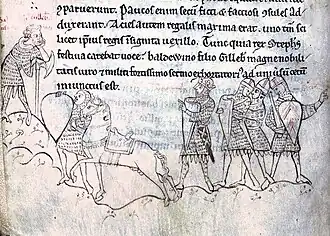 paruerunt. Paucos enim secũ facti & factiosi ꝯsules ad
duxerant. Acies autem regalis maxima erat. uno tm̃ sci
licet ipsius regis insignita uexillo. Tunc quia rex Steph̃s
festiua carebat uoce. baldewino filio Gilleb̃ magne nobili
tatis uiro & militi fortissimo sermo exhortatorius ad
iniunctus est.